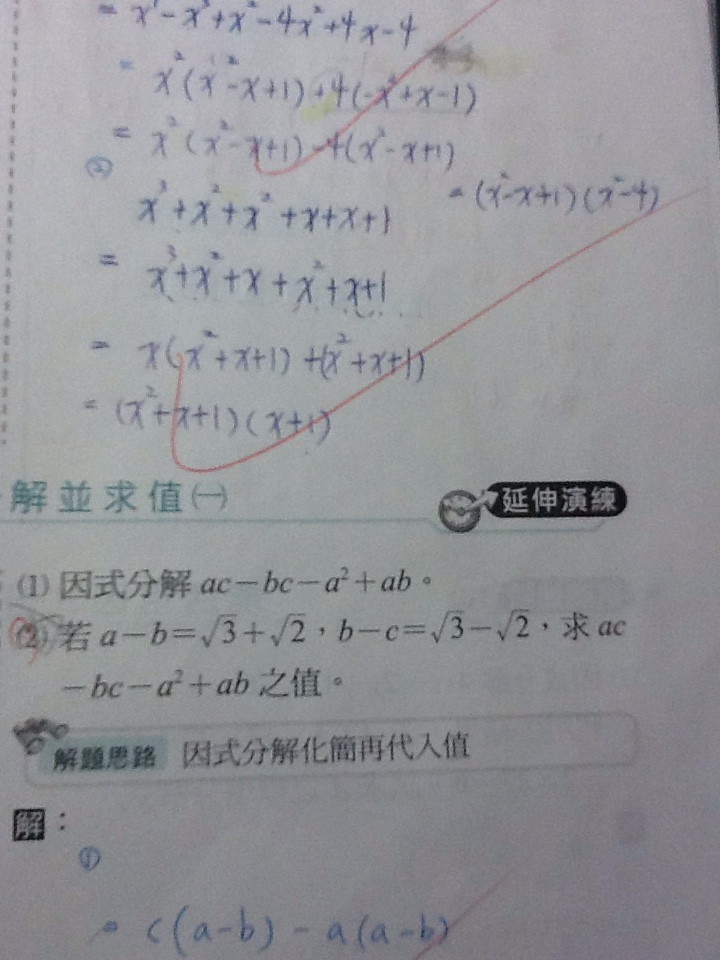 = x⁴-x³+x²-4x²+4x-4
= x²(x²-x+1)+4(-x²+x-1)
= x²(x²-x+1)-4(x²-x+1)
= (x²-x+1)(x²-4)
②
x³+x²+x²+x+x+1
= x³+x²+x+x²+x+1
= x(x²+x+1)+(x²+x+1)
= (x²+x+1)(x+1)
解並求值㈠
延伸演練
(1) 因式分解 ac-bc-a²+ab。
(2) 若 a-b=√3+√2,b-c=√3-√2,求 ac
-bc-a²+ab 之值。
解題思路 因式分解化簡再代入值
解:
①
= c(a-b)-a(a-b)